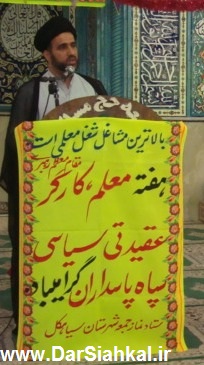 بالاترین مشاغل شغل معلمی است
هفته معلم، کارگر
عقیدتی سیاسی
سپاه پاسداران گرامیباد
ستاد نماز جمعه شهرستان سیاهکل
www.DarSiahkal.ir